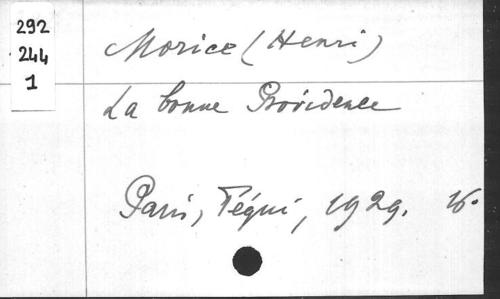 292
244
1
Morice (Henri)
La bonne Providence
Paris, Téqui, 1929. 16.